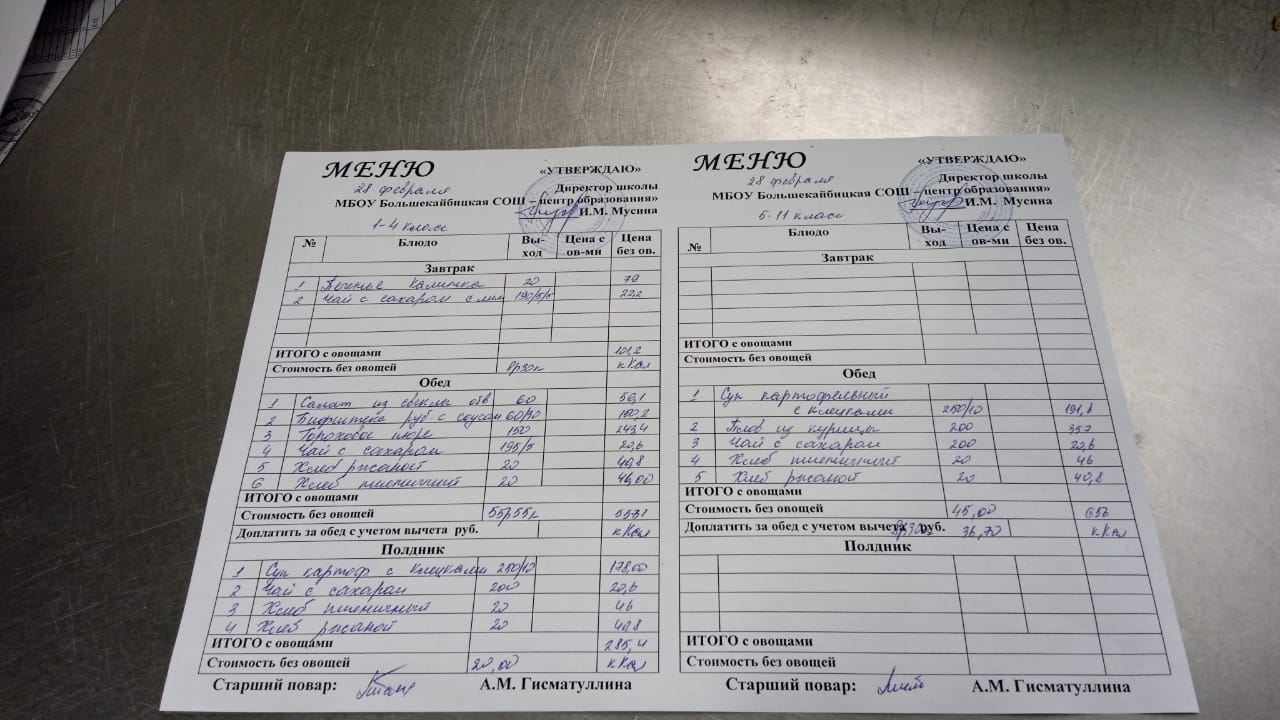 МЕНЮ
«УТВЕРЖДАЮ»
28 февраля
Директор школы
МБОУ Большекайбицкая СОШ – центр образования»
И.М. Мусина
1-4 класс
№ Блюдо Вы-ход Цена с ов-ми Цена без ов.
Завтрак
1 Печенье Калинка 20 79
2 Чай с сахаром с лим 190/5/5 22,2
ИТОГО с овощами 101,2
Стоимость без овощей кКал
Обед
1 Салат из свеклы отв 60 56,1
2 Бифштекс руб с соусом 60/30
3 Гороховое пюре 150 243,4
4 Чай с сахаром 195/5 20,6
5 Хлеб ржаной 20 40,8
6 Хлеб пшеничный 20 46,00
ИТОГО с овощами
Стоимость без овощей 55р55к 557,1
Доплатить за обед с учетом вычета руб. кКал
Полдник
1 Суп картоф с клецками 250/10 178,00
2 Чай с сахаром 200 20,6
3 Хлеб пшеничный 20 46
4 Хлеб ржаной 20 40,8
ИТОГО с овощами 285,4
Стоимость без овощей 20,00 кКал
Старший повар: А.М. Гисматуллина
МЕНЮ
«УТВЕРЖДАЮ»
28 февраля
Директор школы
МБОУ Большекайбицкая СОШ – центр образования»
И.М. Мусина
5-11 класс
№ Блюдо Вы-ход Цена с ов-ми Цена без ов.
Завтрак
ИТОГО с овощами
Стоимость без овощей
Обед
1 Суп картофельный
с клецками 250/10 191,6
2 Плов из курицы 200 357
3 Чай с сахаром 200 20,6
4 Хлеб пшеничный 20 46
5 Хлеб ржаной 20 40,8
ИТОГО с овощами
Стоимость без овощей 45,00 656
Доплатить за обед с учетом вычета руб. 36,70 кКал
Полдник
ИТОГО с овощами
Стоимость без овощей
Старший повар: А.М. Гисматуллина